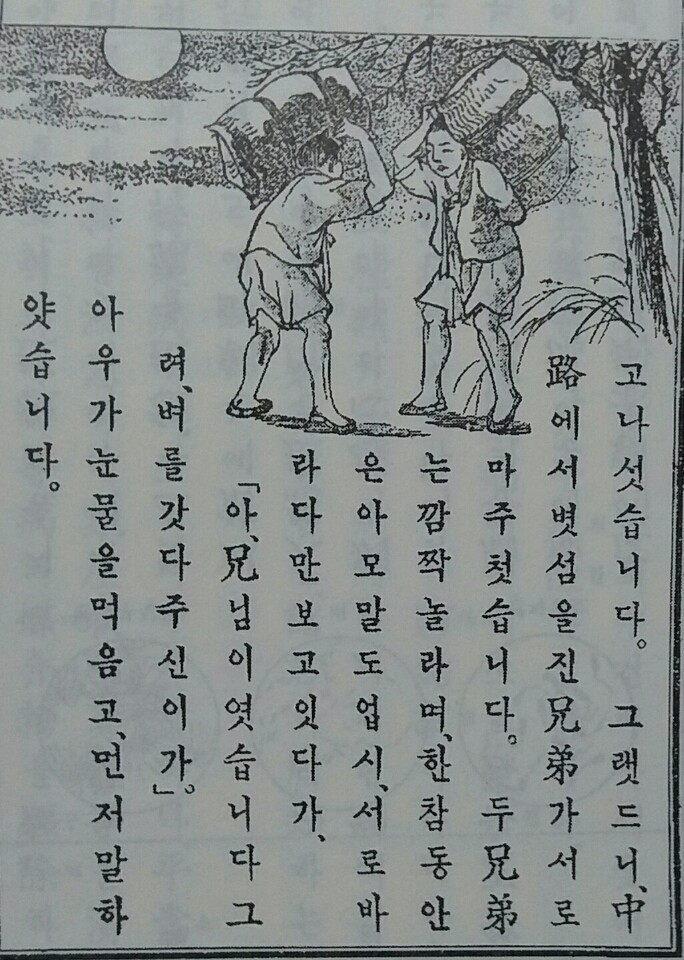 고나섯습니다。 그랫드니、中
路에서볏섬을진兄弟가서로
마주첫습니다。 두兄弟
는깜짝놀라며、한참동안
은아모말도업시、서로바
라다만보고잇다가、
「아、兄님이엿습니다그
려、벼를갓다주신이가」。
아우가눈물을먹음고、먼저말하
얏습니다。